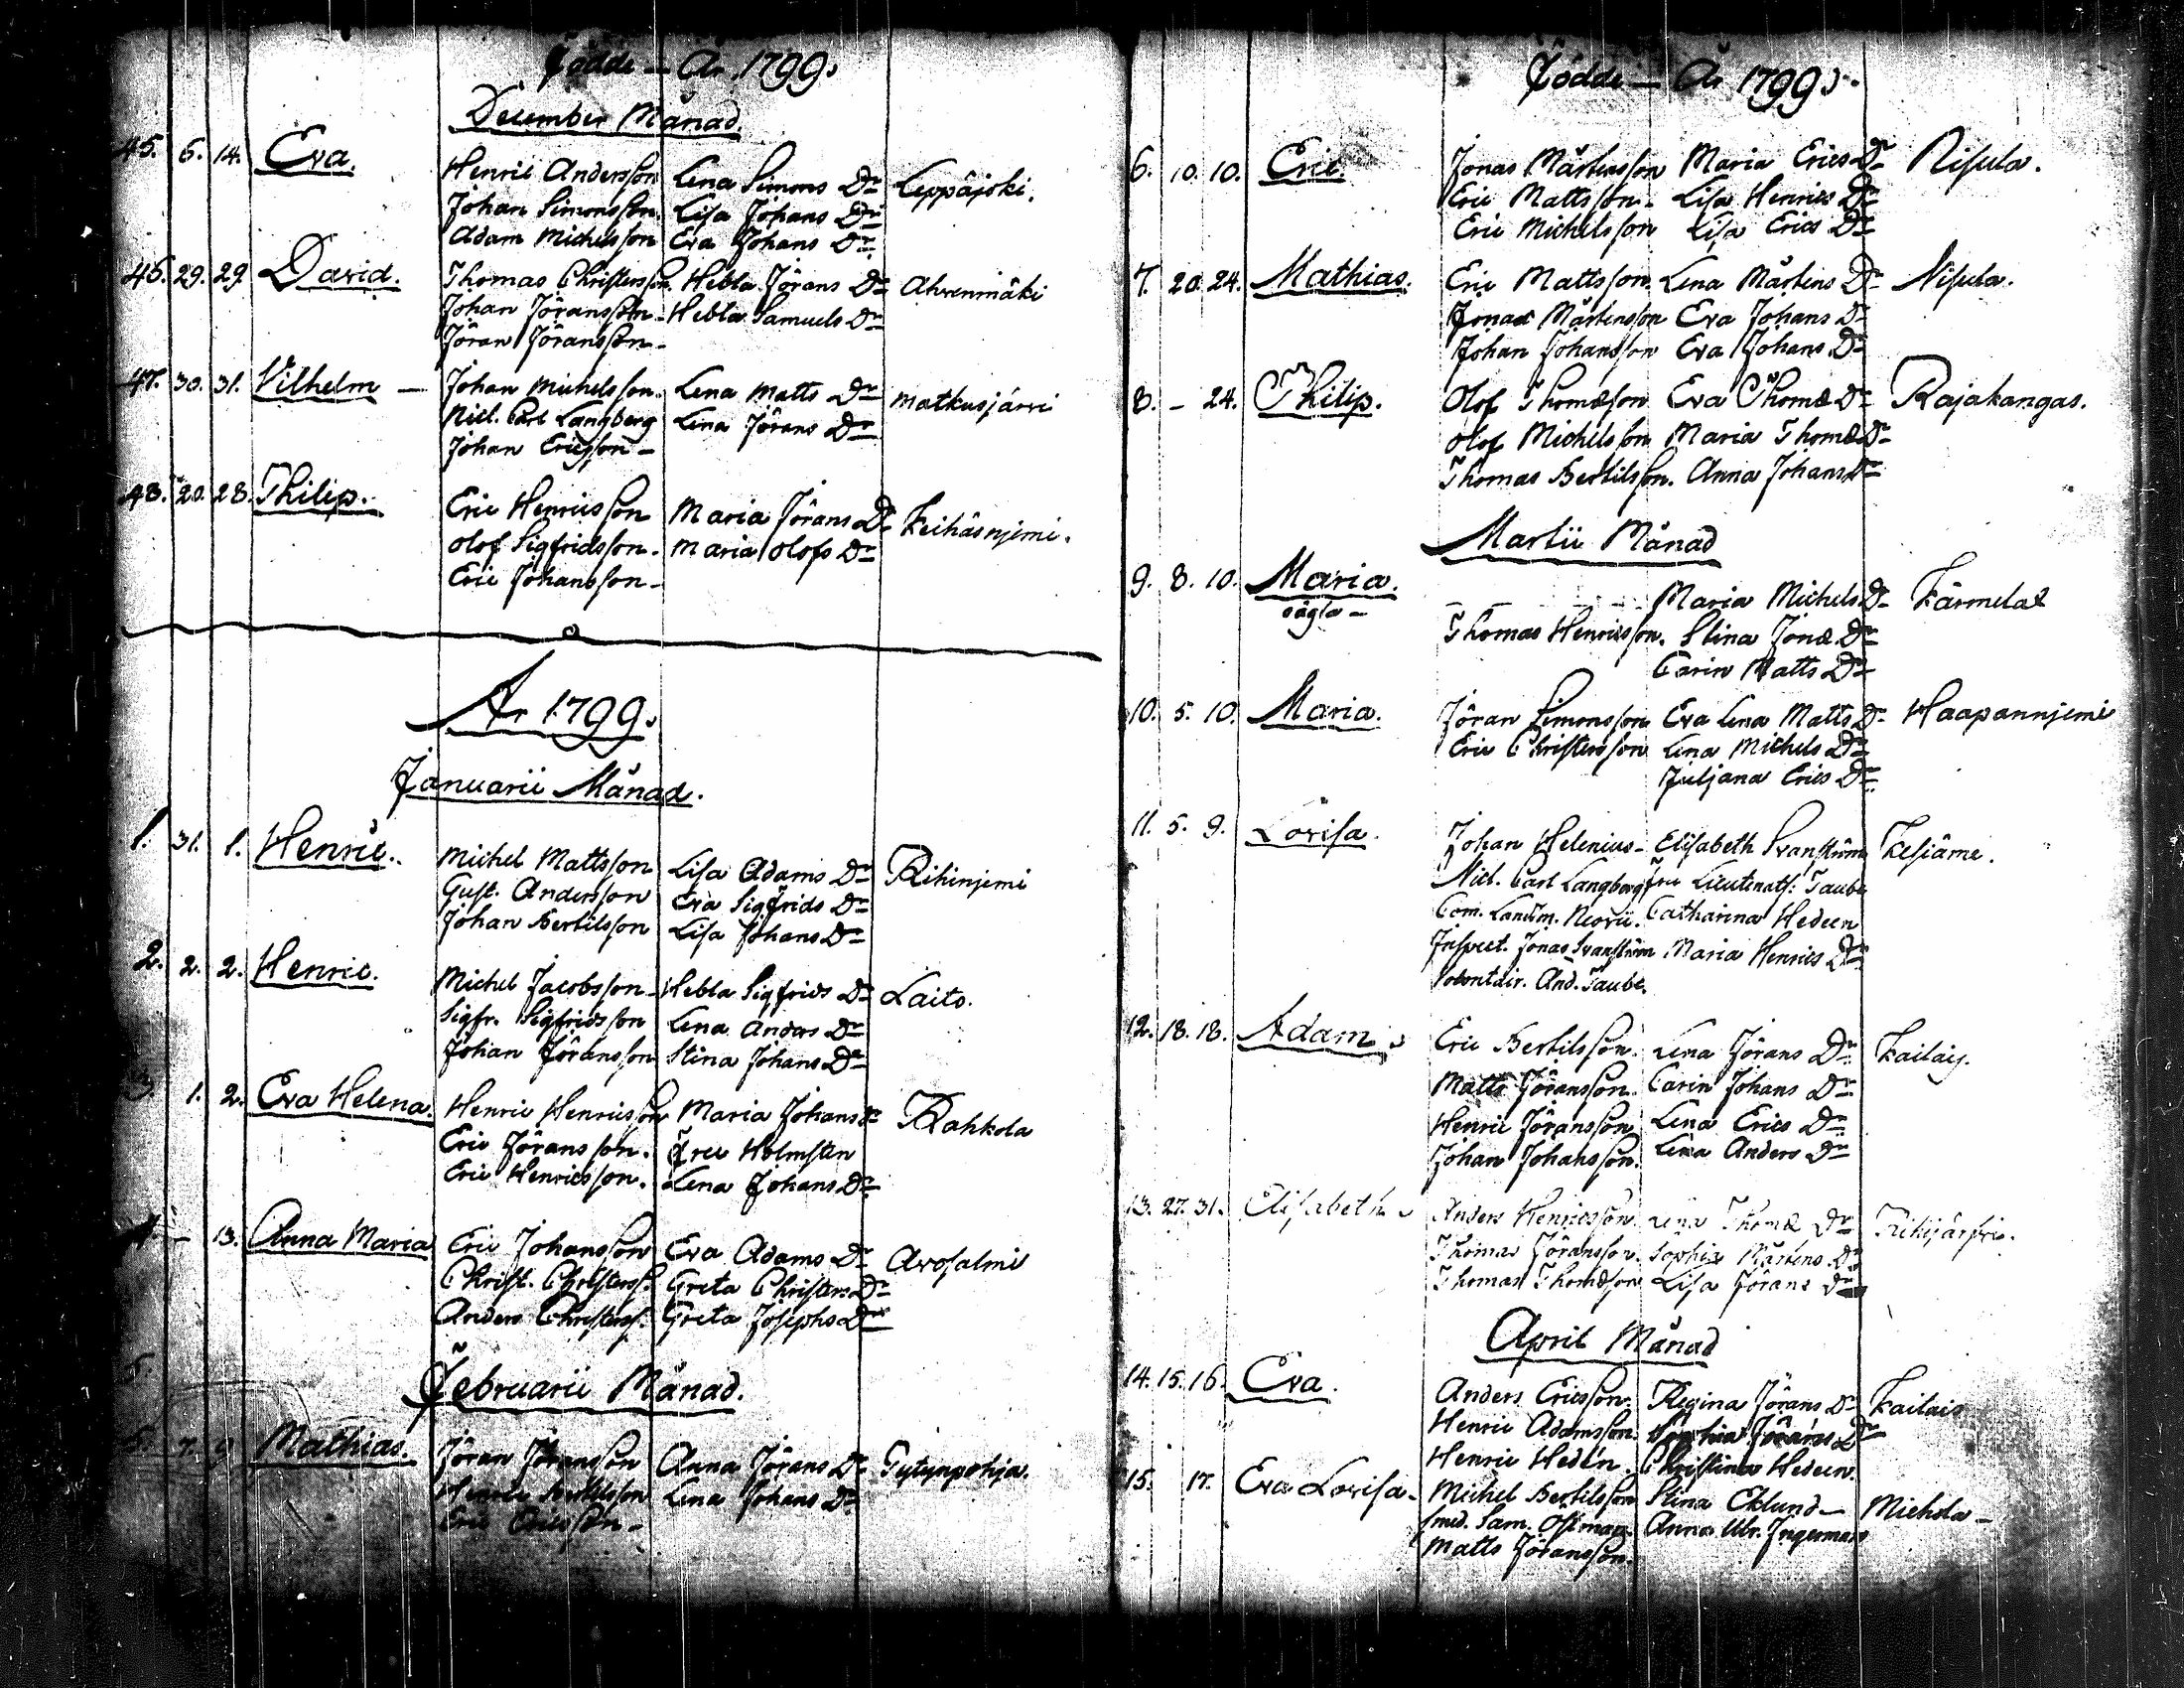 Födde – År 1799.
December Månad.
45. 6. 14. Eva. Henric Andersson Lena Simons Dr Leppäjoki.
Johan Simonsson. Lisa Johans Dr
Adam Michelsson Eva Johans Dr
46. 29. 29. David. Thomas Christersson. Hebla Jörans Dr Ahvenmäki
Johan Jöransson – Hebla Samuels Dr
Jöran Jöransson –
47. 30. 31. Vilhelm – Johan Michelsson. Lena Matts Dr Matkusjärvi
Nicl. Carl Langberg Lena Jörans Dr
Johan Ericsson –
48. 20. 28. Philip. Eric Henricsson Maria Jörans Dr Keihäsnjemi.
Olof Sigfridsson. Maria Olofs Dr
Eric Johansson –
Ar 1799.
Januarii Månad.
1. 31. 1. Henric. Michel Mattsson Lisa Adams Dr Rihinjemi
Gust. Andersson Eva Sigfrids Dr
Johan Bertilsson Lisa Johans Dr
2. 2. 2. Henric. Michel Jacobsson – Hebla Sigfrids Dr Laito.
Sigfr. Sigfridsson Lena Anders Dr
Johan Jöransson Stina Johans Dr
3. 1. 2. Eva Helena. Henric Henricsson Maria Johans Dr Rahkola
Eric Jöransson. Fru Holmsten
Eric Henricsson. Lena Johans Dr
4. – 13. Anna Maria Eric Johansson Eva Adams Dr Arosalmi
Christ. Christerss. Greta Christers Dr
Anders Christerss. Greta Josephs Dr
5.
Februarii Månad.
5. 7. 9 Mathias. Jöran Jöransson Anna Jörans Dr Tytynpohja.
Henric Bertilsson Lena Johans Dr
Eric Ericsson –
Födde – År 1799.
6. 10. 10. Eric. Jonas Mårtensson Maria Erics Dr Nisula.
Eric Mattsson – Lisa Henrics Dr
Eric Michelsson Lisa Erics Dr
7. 20. 24. Mathias. Eric Mattsson Lena Mårtens Dr Nisula.
Jonas Mårtensson Eva Johans Dr
Johan Johansson Eva Johans Dr
8. – 24. Philip. Olof Thomæson Eva Thomæ Dr Rajakangas.
Olof Michelsson Maria Thomæ Dr
Thomas Bertilsson. Anna Johans Dr
Martii Månad
9. 8. 10. Maria. – – – Maria Michels Dr Kärmelat
oägta – Thomas Henricsson. Stina Jonæ Dr
Carin Matts Dr
10. 5. 10. Maria. Jöran Simonsson Eva Lena Matts Dr Haapannjemi
Eric Christersson Lena Michels Dr
Juljana Erics Dr
11. 5. 9. Lovisa. Johan Helenius – Elisabeth Svanström Kesiäme.
Nicl. Carl Langberg Fru Lieutenats: Taube
Com. Landtm. Neovii. Catharina Hedeen
Inspect. Jonas Svanström Maria Henrics Dr
Volontair. And. Taube.
12. 18. 18. Adam. Eric Bertilsson. Lena Jörans Dr Kailais.
Matts Jöransson. Carin Johans Dr
Henric Jöransson Lena Erics Dr
Johan Johansson. Lena Anders Dr
13. 27. 31. Elisabeth. Anders Henricsson. Lena Thomæ Dr
Thomas Jöransson. Sophia Mårtens Dr
Thomas Thomæson Lisa Jörans Dr
April Månad
14. 15. 16. Eva. Anders Ericsson. Regina Jörans Dr Kailais
Henric Adamsson. Sophia Jörans Dr
Henric Hedén. Christina Hedeen.
15. 17. Eva Lovisa – Michel Bertilsson Stina Eklund – Miehola –
smed. Sam. Östman. Anna Ulr. Ingerman
Matts Jöransson.